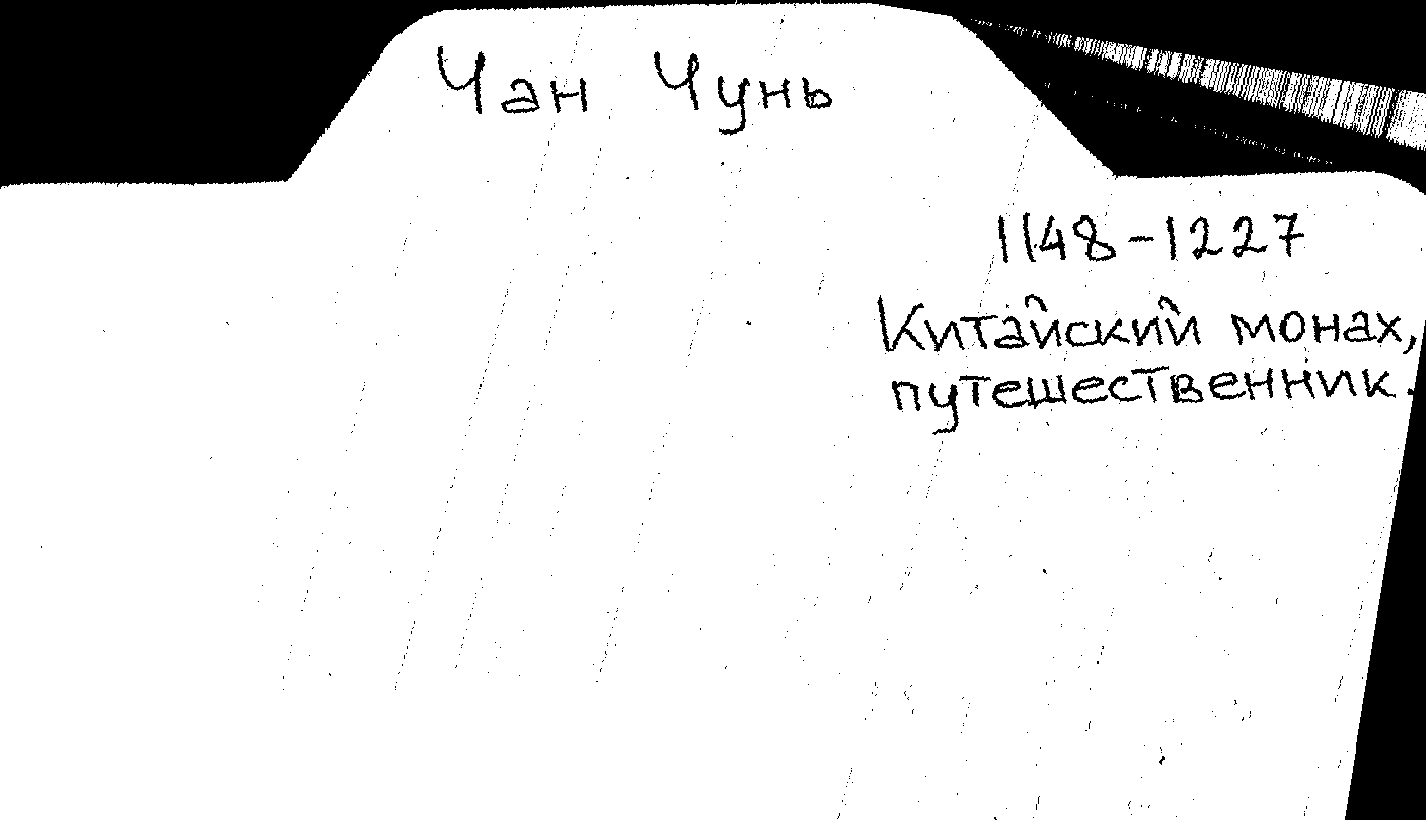 Чан Чунь
1148-1227
Китайский монах,
путешественник.